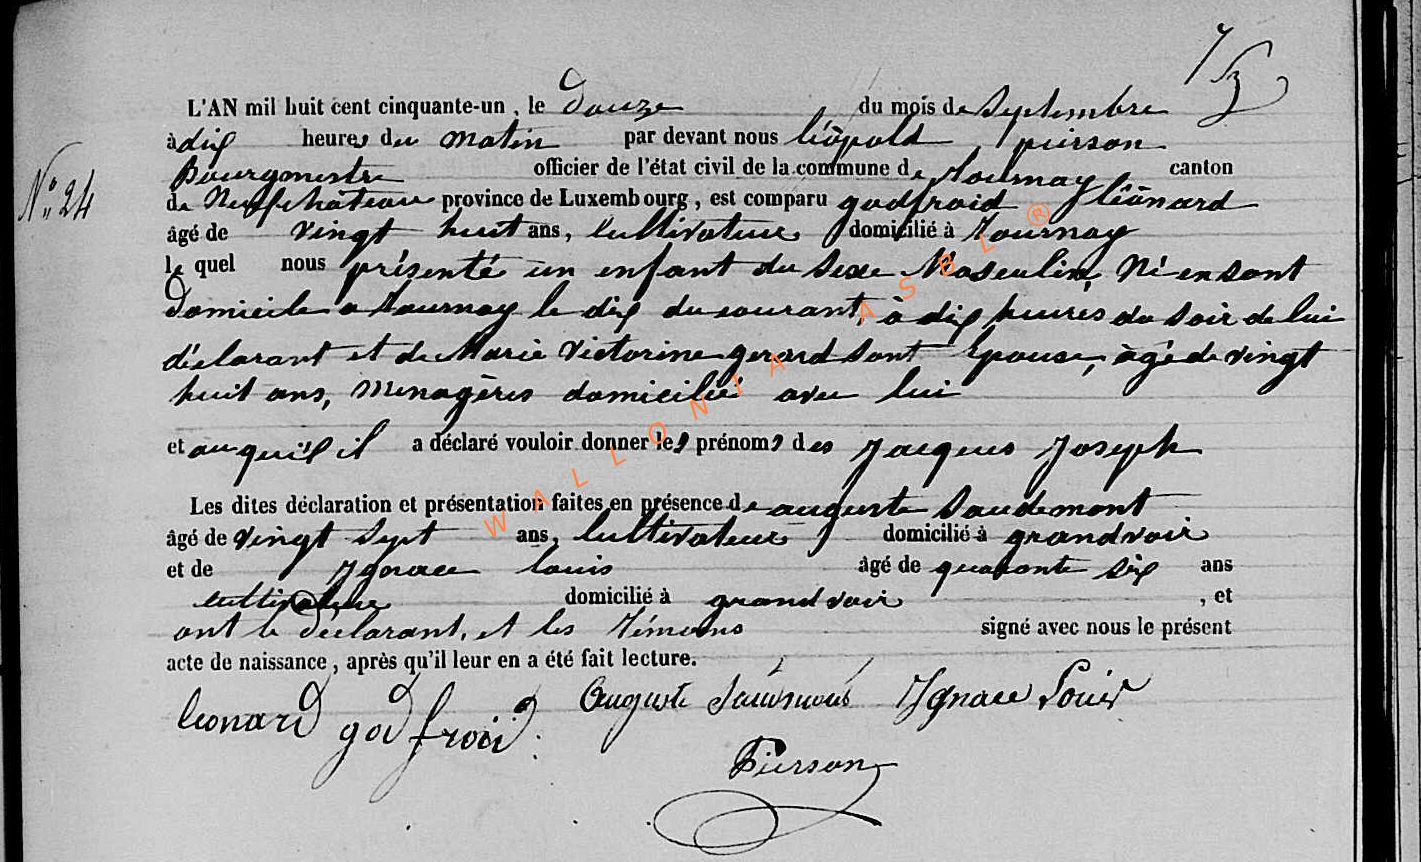 L'AN mil huit cent cinquante-un, le Douze du mois de Septembre
à dix heures du matin par devant nous Léopold pierson
Bourgmestre officier de l'état civil de la commune de tournay canton
de Neufchâteau province de Luxembourg, est comparu godfroid léonard
N° 24
âgé de vingt huit ans, Cultivateur domicilié à Tournay
le quel nous présenté un enfant du sexe Masculin, Né en sont
Domicile a tournay le dix du courant, à dix heures du soir de lui
déclarant et de Marie Victorine gerard sont Epouse, àgé de vingt
huit ans, Menagères domicilié avec lui
et auquel il a déclaré vouloir donner les prénoms des Jacques Joseph
Les dites déclaration et présentation faites en présence de auguste
âgé de vingt sept ans, Cultivateur domicilié à grandvoir
et de Ignace louis âgé de quaronte six ans
cultivateur domicilié à grandvoir, et
ont le déclarant, et les témoins signé avec nous le présent
acte de naissance, après qu'il leur en a été fait lecture.
leonard godfroid Auguste Ignace Louis
Pierson
WALLONIA ASBL ®